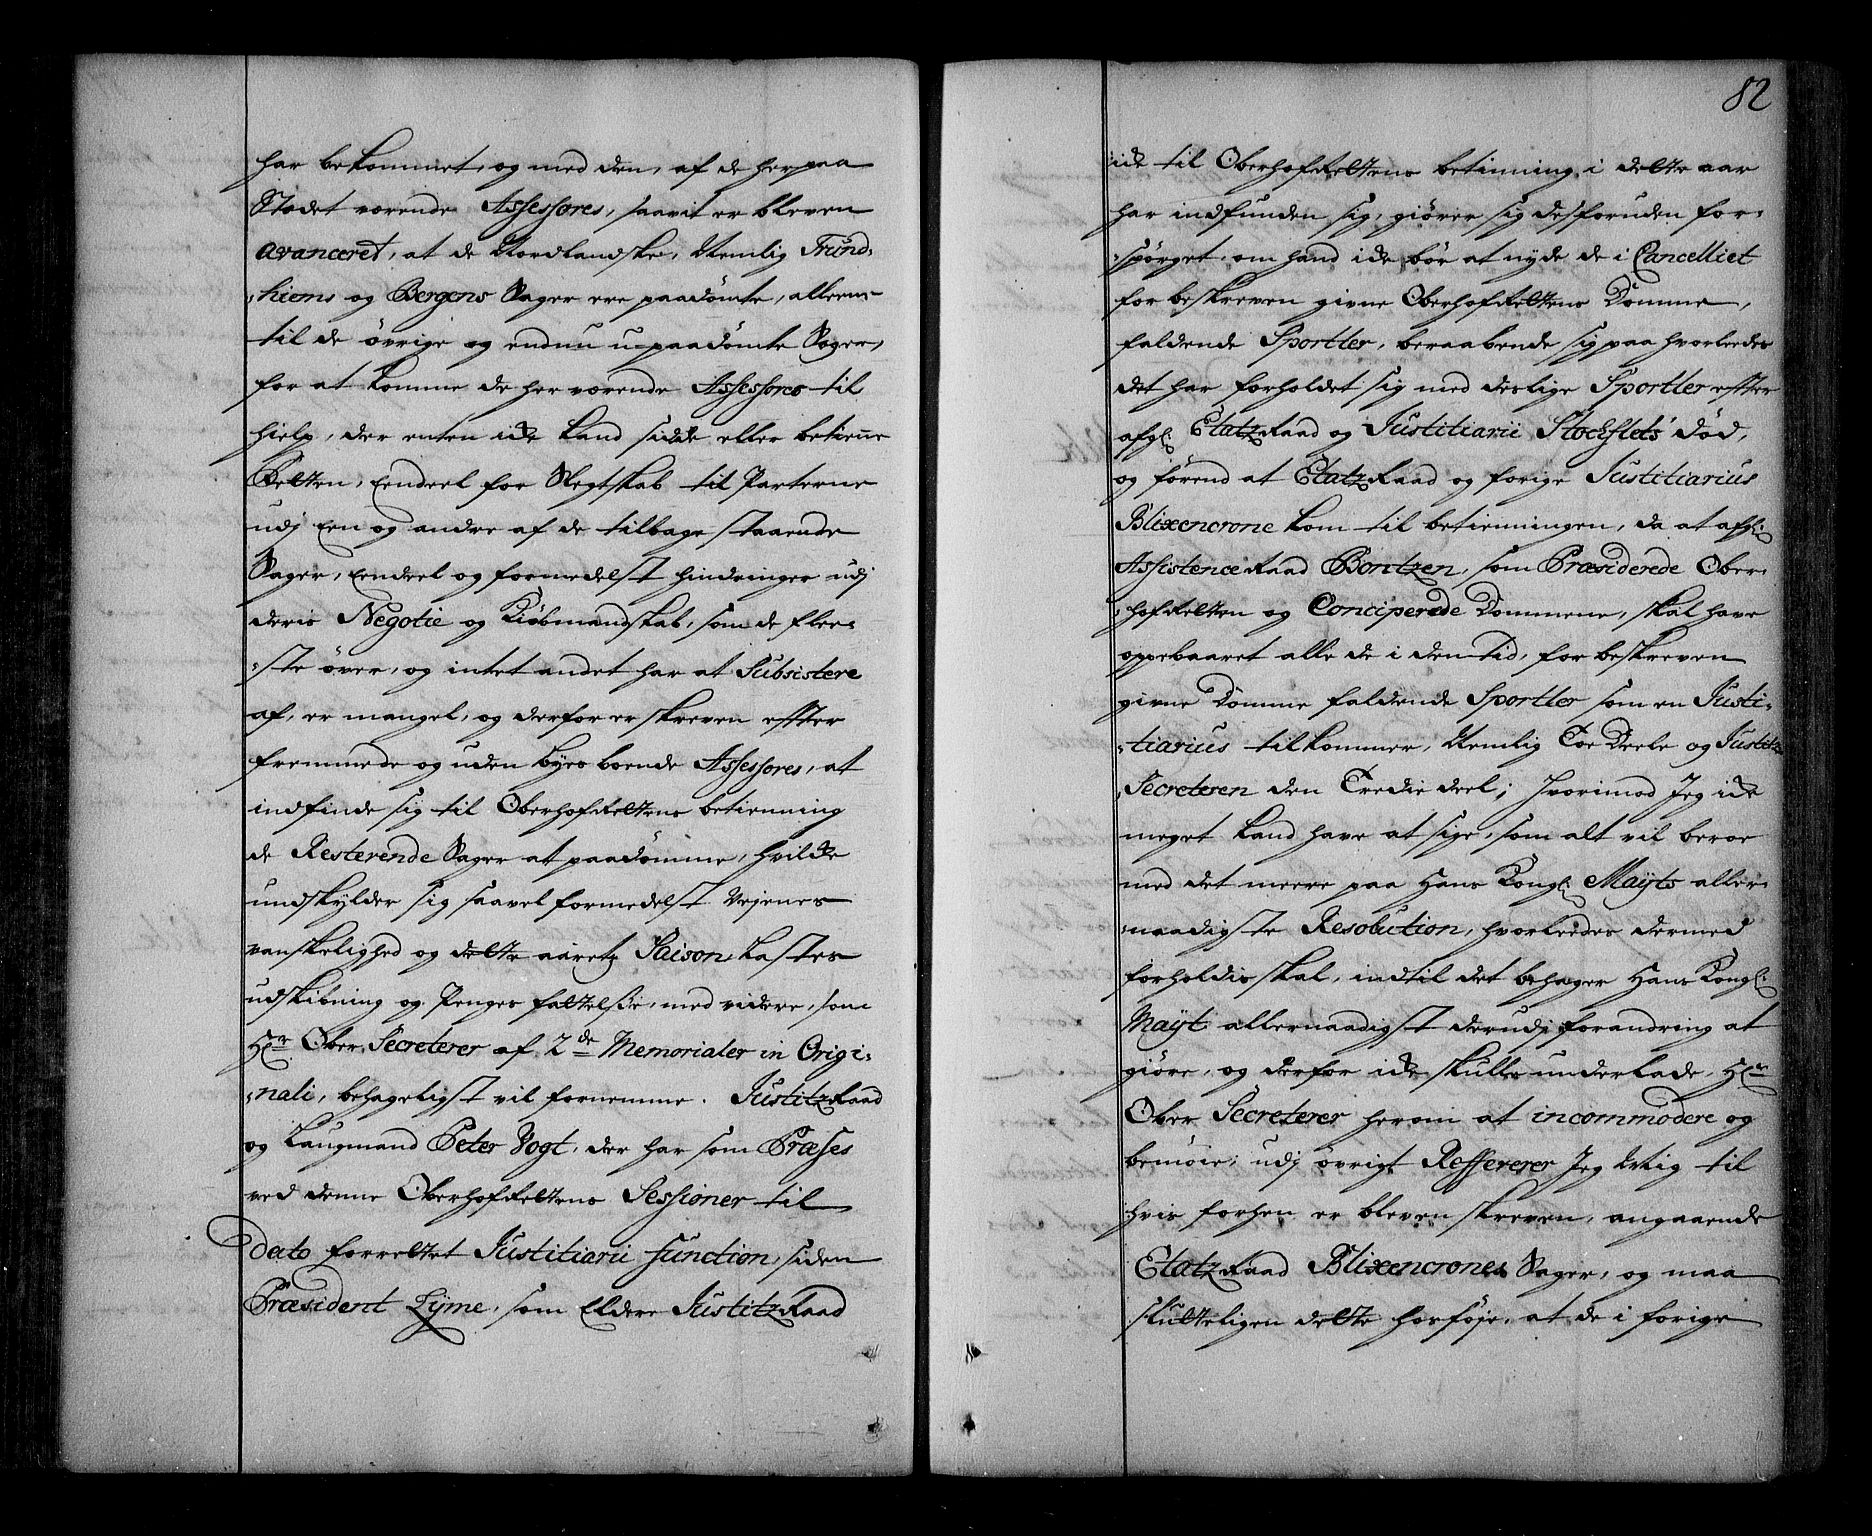 har bekommet, og med den, af de her paa
Stædet værende Assessores, saavit er bleven
avanceret, at de Nordlandske, Nemlig Trund-
hiems og Bergens Sager ere paadømte, alleene
til de øvrige og endnu u-paadømte Sager,
for at komme de her værende Assessores til
hielp, der enten icke kand sidde eller betienne
Retten, Eendeel for Slegtskab til Parterne
udj Een og andre af de tilbage staaende
Sager, Eendeel og formedelst hindringer udj
deris Negotie og Kiøbmandskab, som de flee-
ste øver, og intet andet har at Subsistere
af, er mangel, og derfor er skreven effter
fremmede og uden Byes boende Assessores, at
indfinde sig til OberhofRettens betienning
de Resterende Sager at paadømme, hvilcke
undskylder sig saavel formedelst Vejenes
vanskelighed og dette aaretz Saison, Lastes
udskibning og Penges fattelse, med videre, som
Hr. Ober Secreterer af 2de Memorialer in Origi-
nali, behageligst vil fornemme. JustitzRaad
og Laugmand Peter Vogt, der har som Præses
ved denne OberhofRettens Sessioner til
Dato forrettet Justitiarii function, siden
Præsident Lyme, som Eldere JustitzRaad
82
icke til OberhofRettens betienning i dette aar
har indfunden sig, giører sig desforuden for-
spörget, om hand icke bør at nyde de i Cancelliet
for beskreven givne OberhofRettens Domme,
faldende Sportler, beraabende sig paa hvorleedes
det har forholdet sig med deslige Sportler effter
afgl: EtatzRaad og Justitiarii Stockflets' død,
og førend at EtatzRaad og forige Justitiarius
Blixencrone kom til betienningen, da at afgl:
AssistenceRaad Bontzen, som Præsiderede Ober-
hofRetten og Conciperede Dommene, skal have
oppebaaret alle de i den tid, for beskreven
givne Domme faldende Sportler som en Justi-
tiarius tilkommer, Nemlig Toe Deele og Justitz
Secreteren den Tredie deel; Hvorimod Jeg icke
meget kand have at sige, som alt vil beroe
med det meere paa Hans Kongl: Mayts aller-
naadigste Resolution, hvorleedes dermed
forholdis skal, indtil det behager Hans Kongl:
Mayt allernaadigst derudj forandring at
giøre, og derfor icke skulle underlade, Hr.
Ober Secreterer herom at incommodere og
bemøie; udj øvrigt Reffererer Jeg Mig til
hvis forhen er bleven skreven, angaaende
EtatzRaad Blixencrones Sager, og maa
skyldeligen dette hosføje, at de i forige